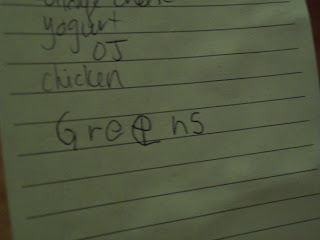 yogurt
OJ
chicken
Greens